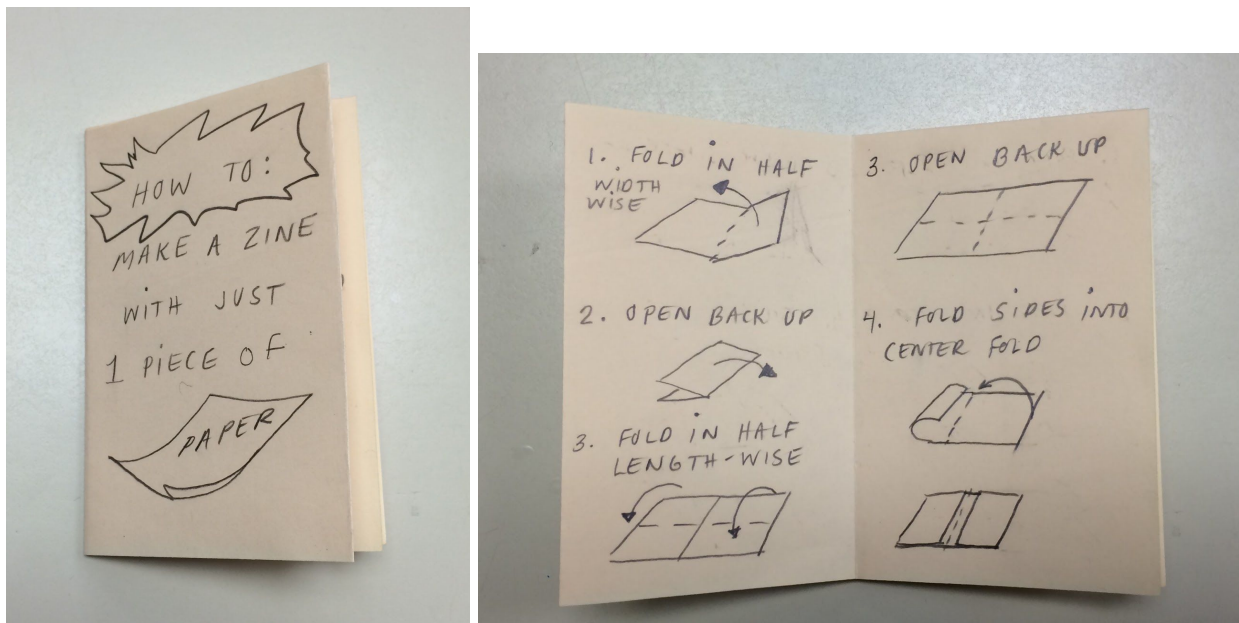 HOW TO:
MAKE A ZINE
WITH JUST
1 PIECE OF
PAPER
1. FOLD IN HALF
WIDTH
WISE
2. OPEN BACK UP
3. FOLD IN HALF
LENGTH-WISE
3. OPEN BACK UP
4. FOLD SIDES INTO
CENTER FOLD